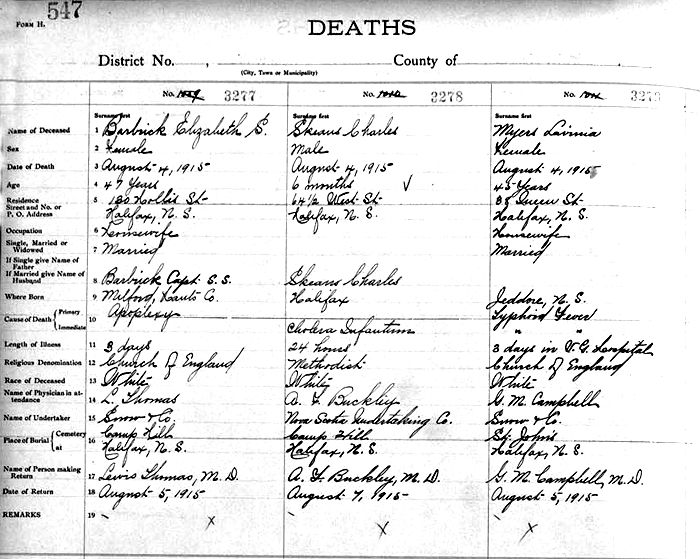 547
FORM H.
DEATHS
District No. , County of
(City, Town or Municipality)
No. 3277 No. 3278 No. 3279
Surname first Surname first Surname first
Name of Deceased 1 Barbrick Elizabeth S. Skeans Charles Myers Lavinia
Sex 2 Female Male Female
Date of Death 3 August 4, 1915 August 4, 1915 August 4, 1915
Age 4 47 Years 6 months 45 Years
Residence Street and No. or P. O. Address 5 180 Hollis St 64½ West St Queen St
Halifax, N. S. Halifax, N. S. Halifax, N. S.
Occupation 6 Housewife Housewife
Single, Married or Widowed 7 Married Married
If Single give Name of Father
If Married give Name of Husband 8 Barbrick Capt. S. S. Skeans Charles
Where Born 9 Milford, Hants Co. Halifax Jeddore, N. S.
Cause of Death { Primary 10 Apoplexy Typhoid Fever
Immediate Cholera Infantum " "
Length of Illness 11 3 days 24 hours 3 days in V. G. Hospital
Religious Denomination 12 Church of England Methodist Church of England
Race of Deceased 13 White White White
Name of Physician in attendance 14 L. Thomas A. F. Buckley G. M. Campbell
Name of Undertaker 15 Snow & Co. Nova Scotia Undertaking Co. Snow & Co.
Place of Burial { Cemetery 16 Camp Hill Camp Hill St. Johns
at Halifax, N. S. Halifax, N. S. Halifax, N. S.
Name of Person making Return 17 Lewis Thomas, M. D. A. F. Buckley, M. D. G. M. Campbell, M. D.
Date of Return 18 August 5, 1915 August 7, 1915 August 5, 1915
REMARKS 19 x x x